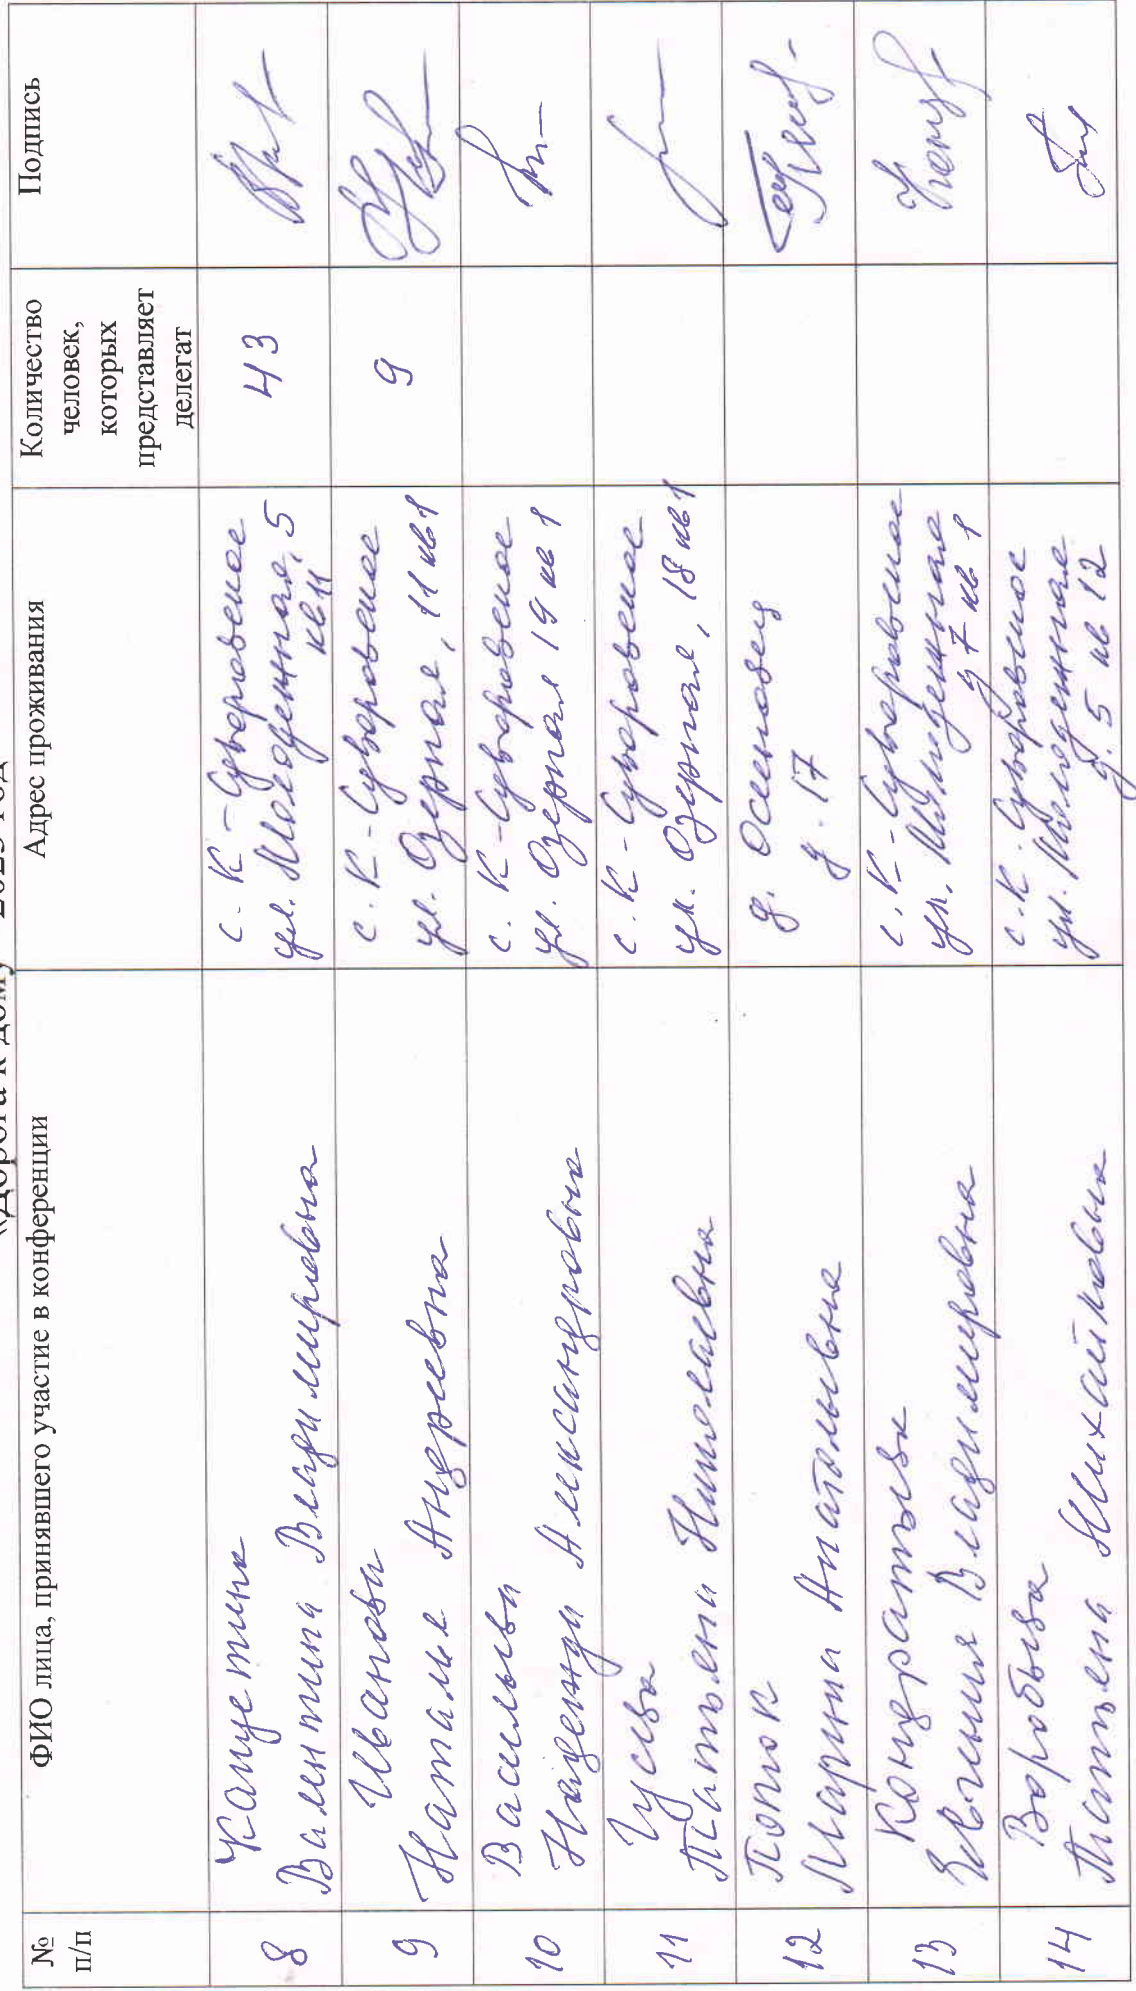 «Дорога к дому» 2023 год
№ п/п
ФИО лица, принявшего участие в конференции
Адрес проживания
Количество человек, которых представляет делегат
Подпись
8
Капустина
Валентина Владимировна
с. К-Суворовское
ул. Молодежная, 5
кв 11
43
9
Иванова
Наталья Андреевна
с. К-Суворовское
ул. Озерная, 11 кв 1
9
10
Васильева
Надежда Александровна
с. К-Суворовское
ул. Озерная 19 кв 1
11
Гусева
Татьяна Николаевна
с. К-Суворовское
ул. Озерная, 18 кв 1
12
Попок
Марина Анатольевна
д. Осиновец
д. 17
13
Кондратьева
Евгения Владимировна
с. К-Суворовское
ул. Молодежная
д 7 кв 1
14
Воробьева
Татьяна Михайловна
с. К. Суворовское
ул. Молодежная
д. 5 кв 12